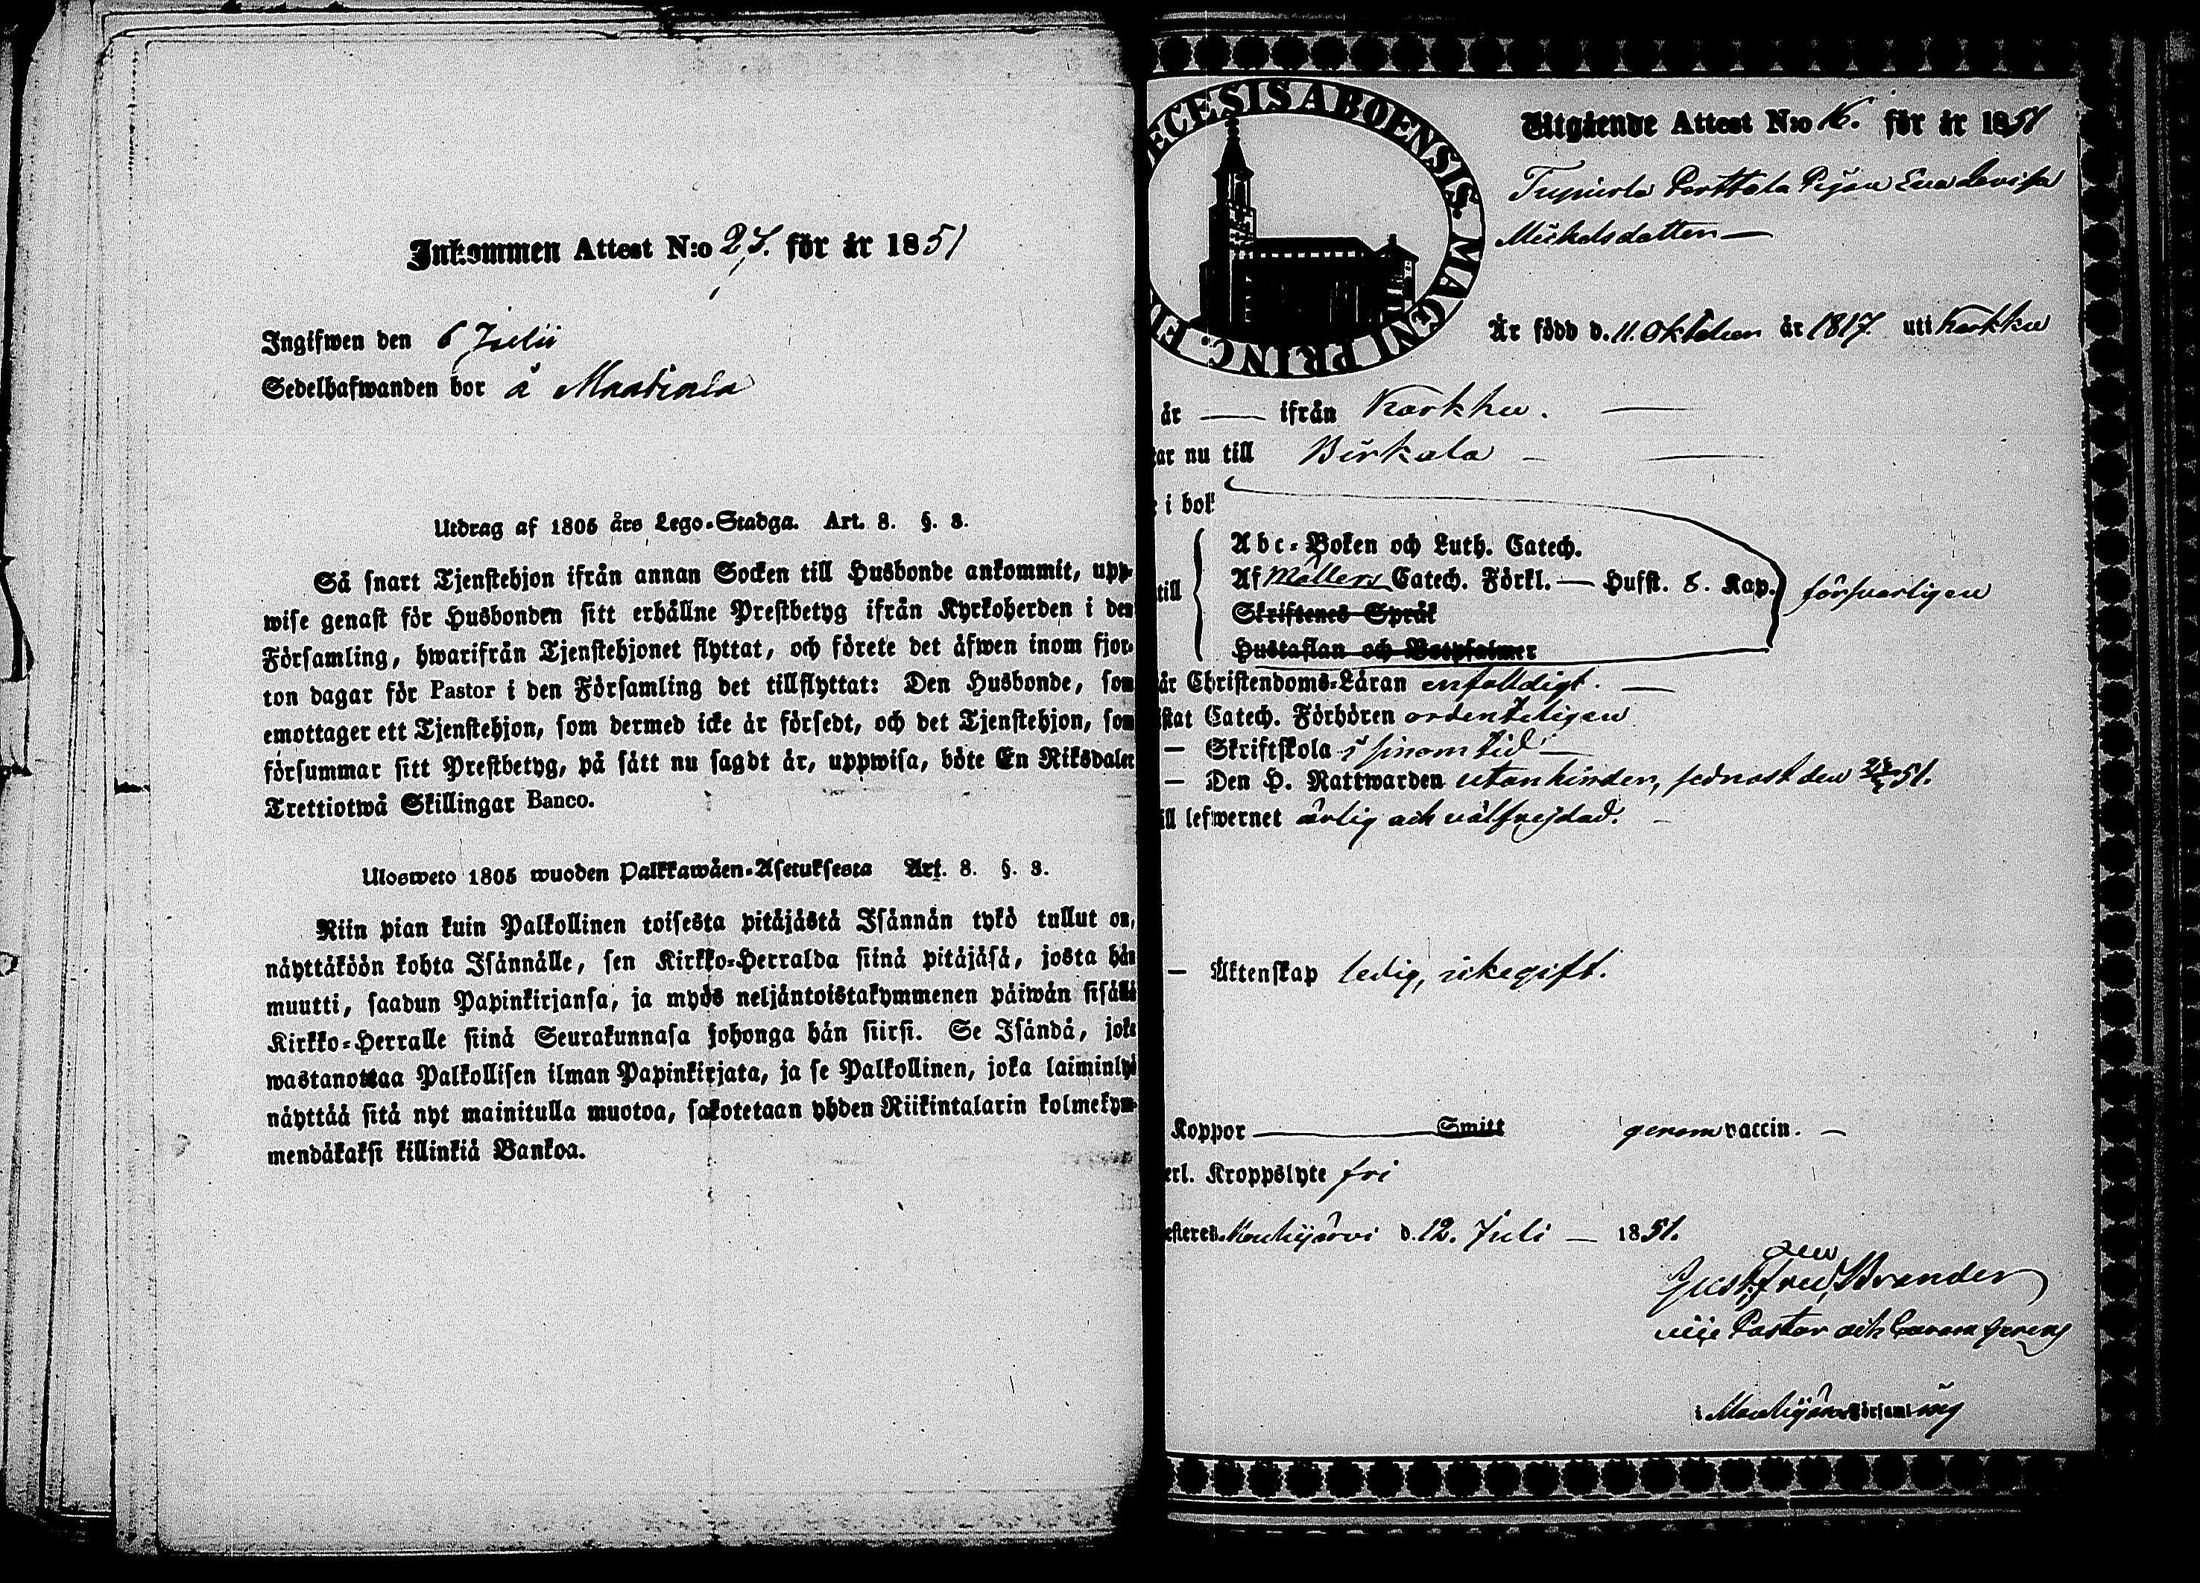 Inkommen Attest N:o 27. för år 1851
Ingifwen den 6 Julii
Sedelhafwanden bor å
Utdrag af 1805 års Lego-Stadga. Art. 8. §. 8.
Så snart Tjenstehjon ifrån annan Socken till Husbonde ankommit, upp-
wise genast för Husbonden sitt erhållne Prestbetyg ifrån Kyrkoherden i den
Församling, hwarifrån Tjenstehjonet flyttat, och förete det äfwen inom fjor-
ton dagar för Pastor i den Församling det tillflyttat: Den Husbonde, som
emottager ett Tjenstehjon, som dermed icke är försedt, och det Tjenstehjon, som
försummar sitt Prestbetyg, på sätt nu sagdt är, uppwisa, böte En Riksdaler
Trettiotwå Skillingar Banco.
Ulosweto 1805 wuoden Palkkawäen-Asetuksesta Art. 8. §. 8.
Niin pian kuin Palkollinen toisesta pitäjästä Isännän tykö tullut on,
näyttäköön kohta Isännälle, sen Kirkko-Herralda siinä pitäjäsä, josta hän
muutti, saadun Papinkirjansa, ja myös neljäntoistakymmenen päiwän sisällä
Kirkko-Herralle siinä Seurakunnasa johonga hän siirsi. Se Isändä, joka
wastanottaa Palkollisen ilman Papinkirjata, ja se Palkollinen, joka laiminlyö
näyttää sitä nyt mainitulla muotoa, sakotetaan yhden Riikintalarin kolmekym-
mendäkaksi killinkiä Bankoa.
ECESIS ABOENSIS. MAGNI PRINC. FI
Utgående Attest N:o 16. för år 1851
Perttala Pigan Eva Lovisa
Michelsdotter
Är född d. 11. Oktober år 1817 uti Karkku
år — ifrån Karkku.
tar nu till Birkala
i bok
Abc-Boken och Luth. Catech.
till Af Möllers Catech. Förkl. — Husst. 8. Kap. försvarligen
Skriftenes Språk
Hustaflan och Botpsalmer
år Christendoms-Läran enfaldigt.
istat Catech. Förhören ordenteligen
— Skriftskola i sinom tid
— Den H. Nattwarden utan hinder, sednast den 51.
ill lefwernet ärlig och välfrejdad.
— Äktenskap ledig, ickegift.
Koppor — Smitt genom vaccin. —
erl. Kroppslyte fri
esteres. Mouhijärvi d. 12. Juli — 1851.
Gust. Fred. Strander
vice Pastor och
i Mouhijärvi Församling